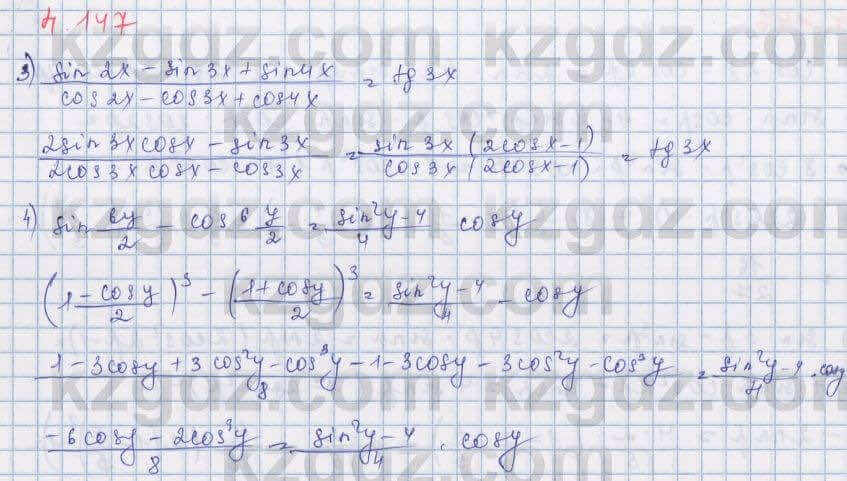 4.147
3) (sin 2x - sin 3x + sin 4x)/(cos 2x - cos 3x + cos 4x) = tg 3x
(2 sin 3x cos x - sin 3x)/(2 cos 3x cos x - cos 3x) = (sin 3x (2cos x - 1))/(cos 3x (2cos x - 1)) = tg 3x
4) sin 6y/2 - cos⁶ y/2 = (sin²y - 4)/4 cos y
((1 - cos y)/2)³ - ((1 + cos y)/2)³ = (sin²y - 4)/4 - cos y
(1 - 3cos y + 3cos²y - cos³y - 1 - 3cos y - 3cos²y - cos³y)/8 = (sin²y - 4)/4 · cos y
(-6cos y - 2cos³y)/8 = (sin²y - 4)/4 · cos y
kzgdz.com
kzgdz.com
kzgdz.com
kzgdz.com
kzgdz.com
kzgdz.com